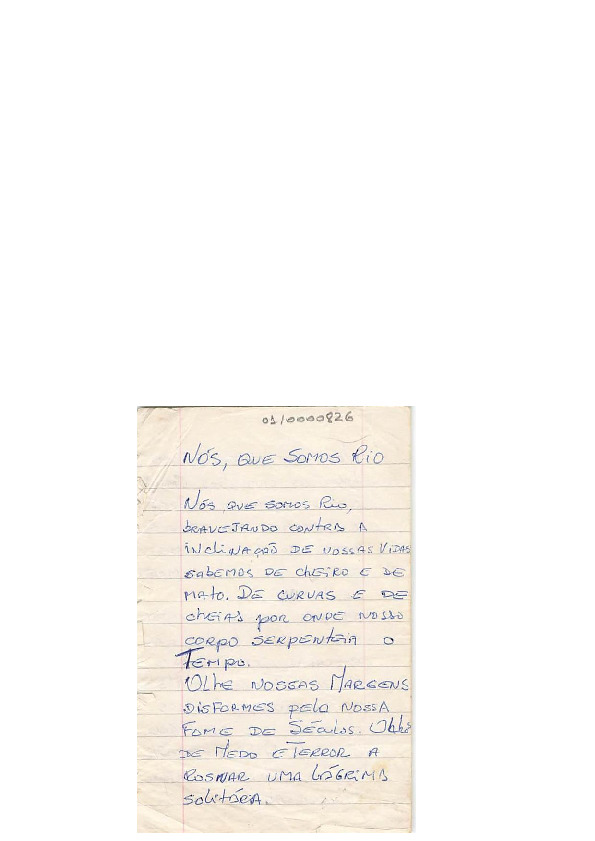 01/0000826
Nós, que somos Rio
Nós que somos Rio,
bravejando contra a
inclinação de nossas vidas
sabemos de cheiro e de
mato. De curvas e de
cheias por onde nosso
corpo serpenteia o
Tempo.
Olhe nossas Margens
disformes pela nossa
fome de séculos.
de Medo e Terror a
rosnar uma lágrima
solitária.